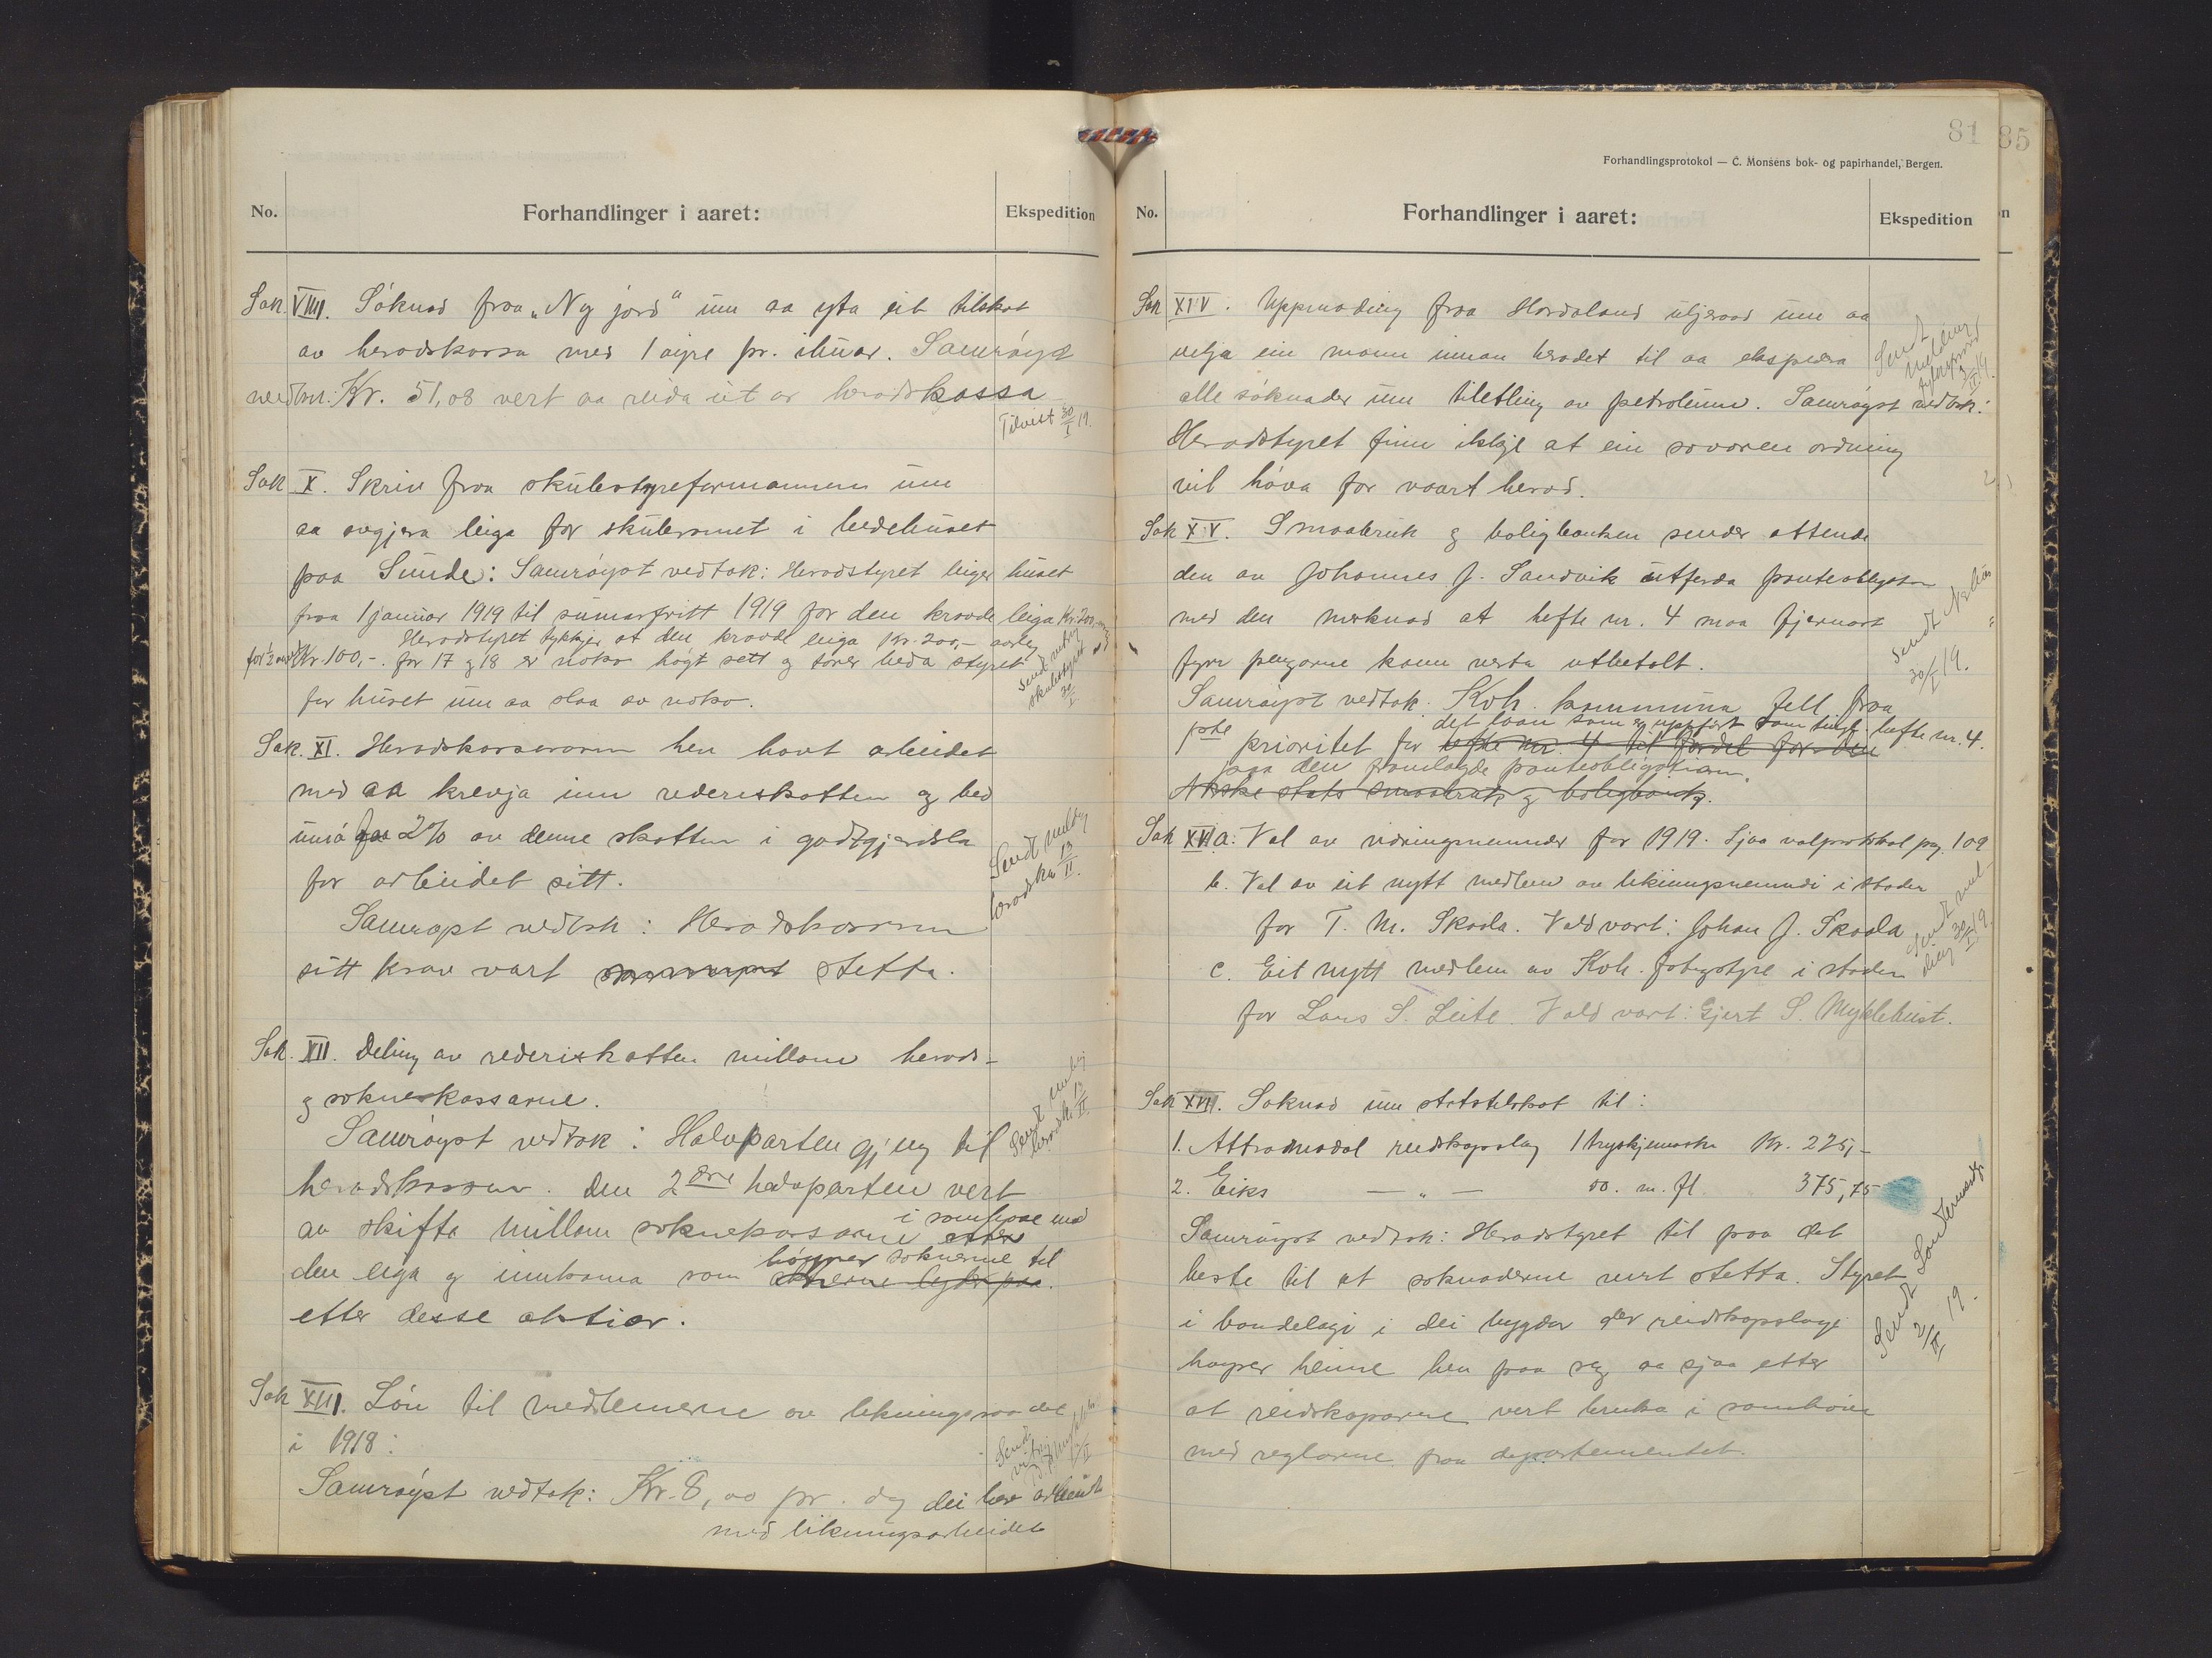 No.
Forhandlinger i aaret:
Ekspedition
Sak. VIIII. Söknad fraa „Ny jord" um aa yta eit tilskot
av heradskassa med 1 öyre pr. ibuar. Samröyst
vedtok: Kr. 51,08 vert aa reida ut av heradskassa
Tilvist 30/I 19.
Sak X. Skriv fraa skulestyreformannen um
aa avgjera leiga for skuleromet i bedehuset
paa Sunde: Samröyst vedtok: Heradstyret leiger huset
fraa 1 januar 1919 til sumarfritt 1919 for den kravde leiga Kr. 200,-
Heradstyret tykkjer at den kravde leiga Kr. 200,- aarleg
for 1/2 aaret Kr. 100,-. for 17 og 18 er noko högt sett og torer beda styret
for huset um aa slaa av noko.
Sendt
skulestyret
30/I
Sak. XI. Heradskasseraren hev havt arbeidet
med aa krevja inn rederiskatten og bed
um å faa 2% av denne skatten i godtgjerdsla
for arbeidet sitt.
Sendt melding
heradsk. 13/II.
Samröyst vedtok: Heradskasseraren
sitt krav vart samröyst stetta.
Sak. XII. Deling av rederiskatten millom herads-
og soknekassarne.
Sendt melding
heradsk. 13/II
Samröyst vedtok: Halvparten gjeng til
heradskassen. den 2dre halvparten vert
i samhove med
av skifta millom soknekassarne etter
höyrer soknerne til
den eiga og innkoma som soknerne legg paa.
etter desse aktiar.
Sak XIII. Lön til medlemerne av likningsraadet
i 1918:
Sendt
Samröyst vedtok: Kr. 8,00 pr. dag dei hev arbeidt
med likningsarbeidet
81
85
Forhandlingsprotokol — C. Monsens bok- og papirhandel, Bergen.
No.
Forhandlinger i aaret:
Ekspedition
Sak XIV. Uppmoding fraa Hordaland oljeraad um aa
velja ein mann innan heradet til aa ekspedera
alle söknader um tiletling av petroleum. Samröyst vedtok:
Heradstyret finn ikkje at ein sovoren ordning
vil höva for vaart herad.
Sendt
melding
fylkesmand
3/II 19.
Sak XV. Smaabruk og boligbanken sender attende
den av Johannes J. Sandvik utferda panteobligation
med den merknad at hefte nr. 4 maa fjernast
fyrr pengarne kann verta utbetalt.
Sendt
30/I 19.
Samröyst vedtok. Kvh. kommuna fell fraa
det laan som er uppfört som tingl. hefte nr. 4.
prioritet for hefte nr. 4 til fordel for den
paa den framlagde panteobligationen.
Norske stats smaabruk og boligbank.
Sak XVIa. Val av nidringsnemnder for 1919. Sjaa valprotokol pag. 109
b. Val av eit nytt medlem av likningsnemndi i staden
for T. M. Skaala. Vald vart: Johan J. Skaala
Sendt mel-
ding 30/I 19.
c. Eit nytt medlem av Kvh. forbygstyre i staden
for Lars S. Leite. Vald vart: Gjert S. Myklebust.
Sak XVII. Soknad um statstilskot til:
1. Attramadal reidskapslag 1 treskjemaskin Kr. 225,-
2. Eiks — „ — do. m. fl. 375,75
Samröyst vedtok: Heradstyret til paa det
beste til at soknaderne vert stetta. Styret
i bondelagi i dei bygder der reidskapslagi
höyrer heime hev paa seg aa sjaa etter
at reidskaparne vert bruka i samhöve
med reglarne fraa departementet.
Sendt Landbruksdp.
2/II 19.